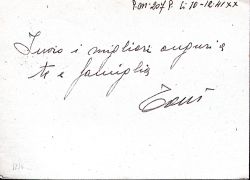 P.M. 207 P. li 10-12-41 XX
Invio i migliori auguri a
te e famiglia